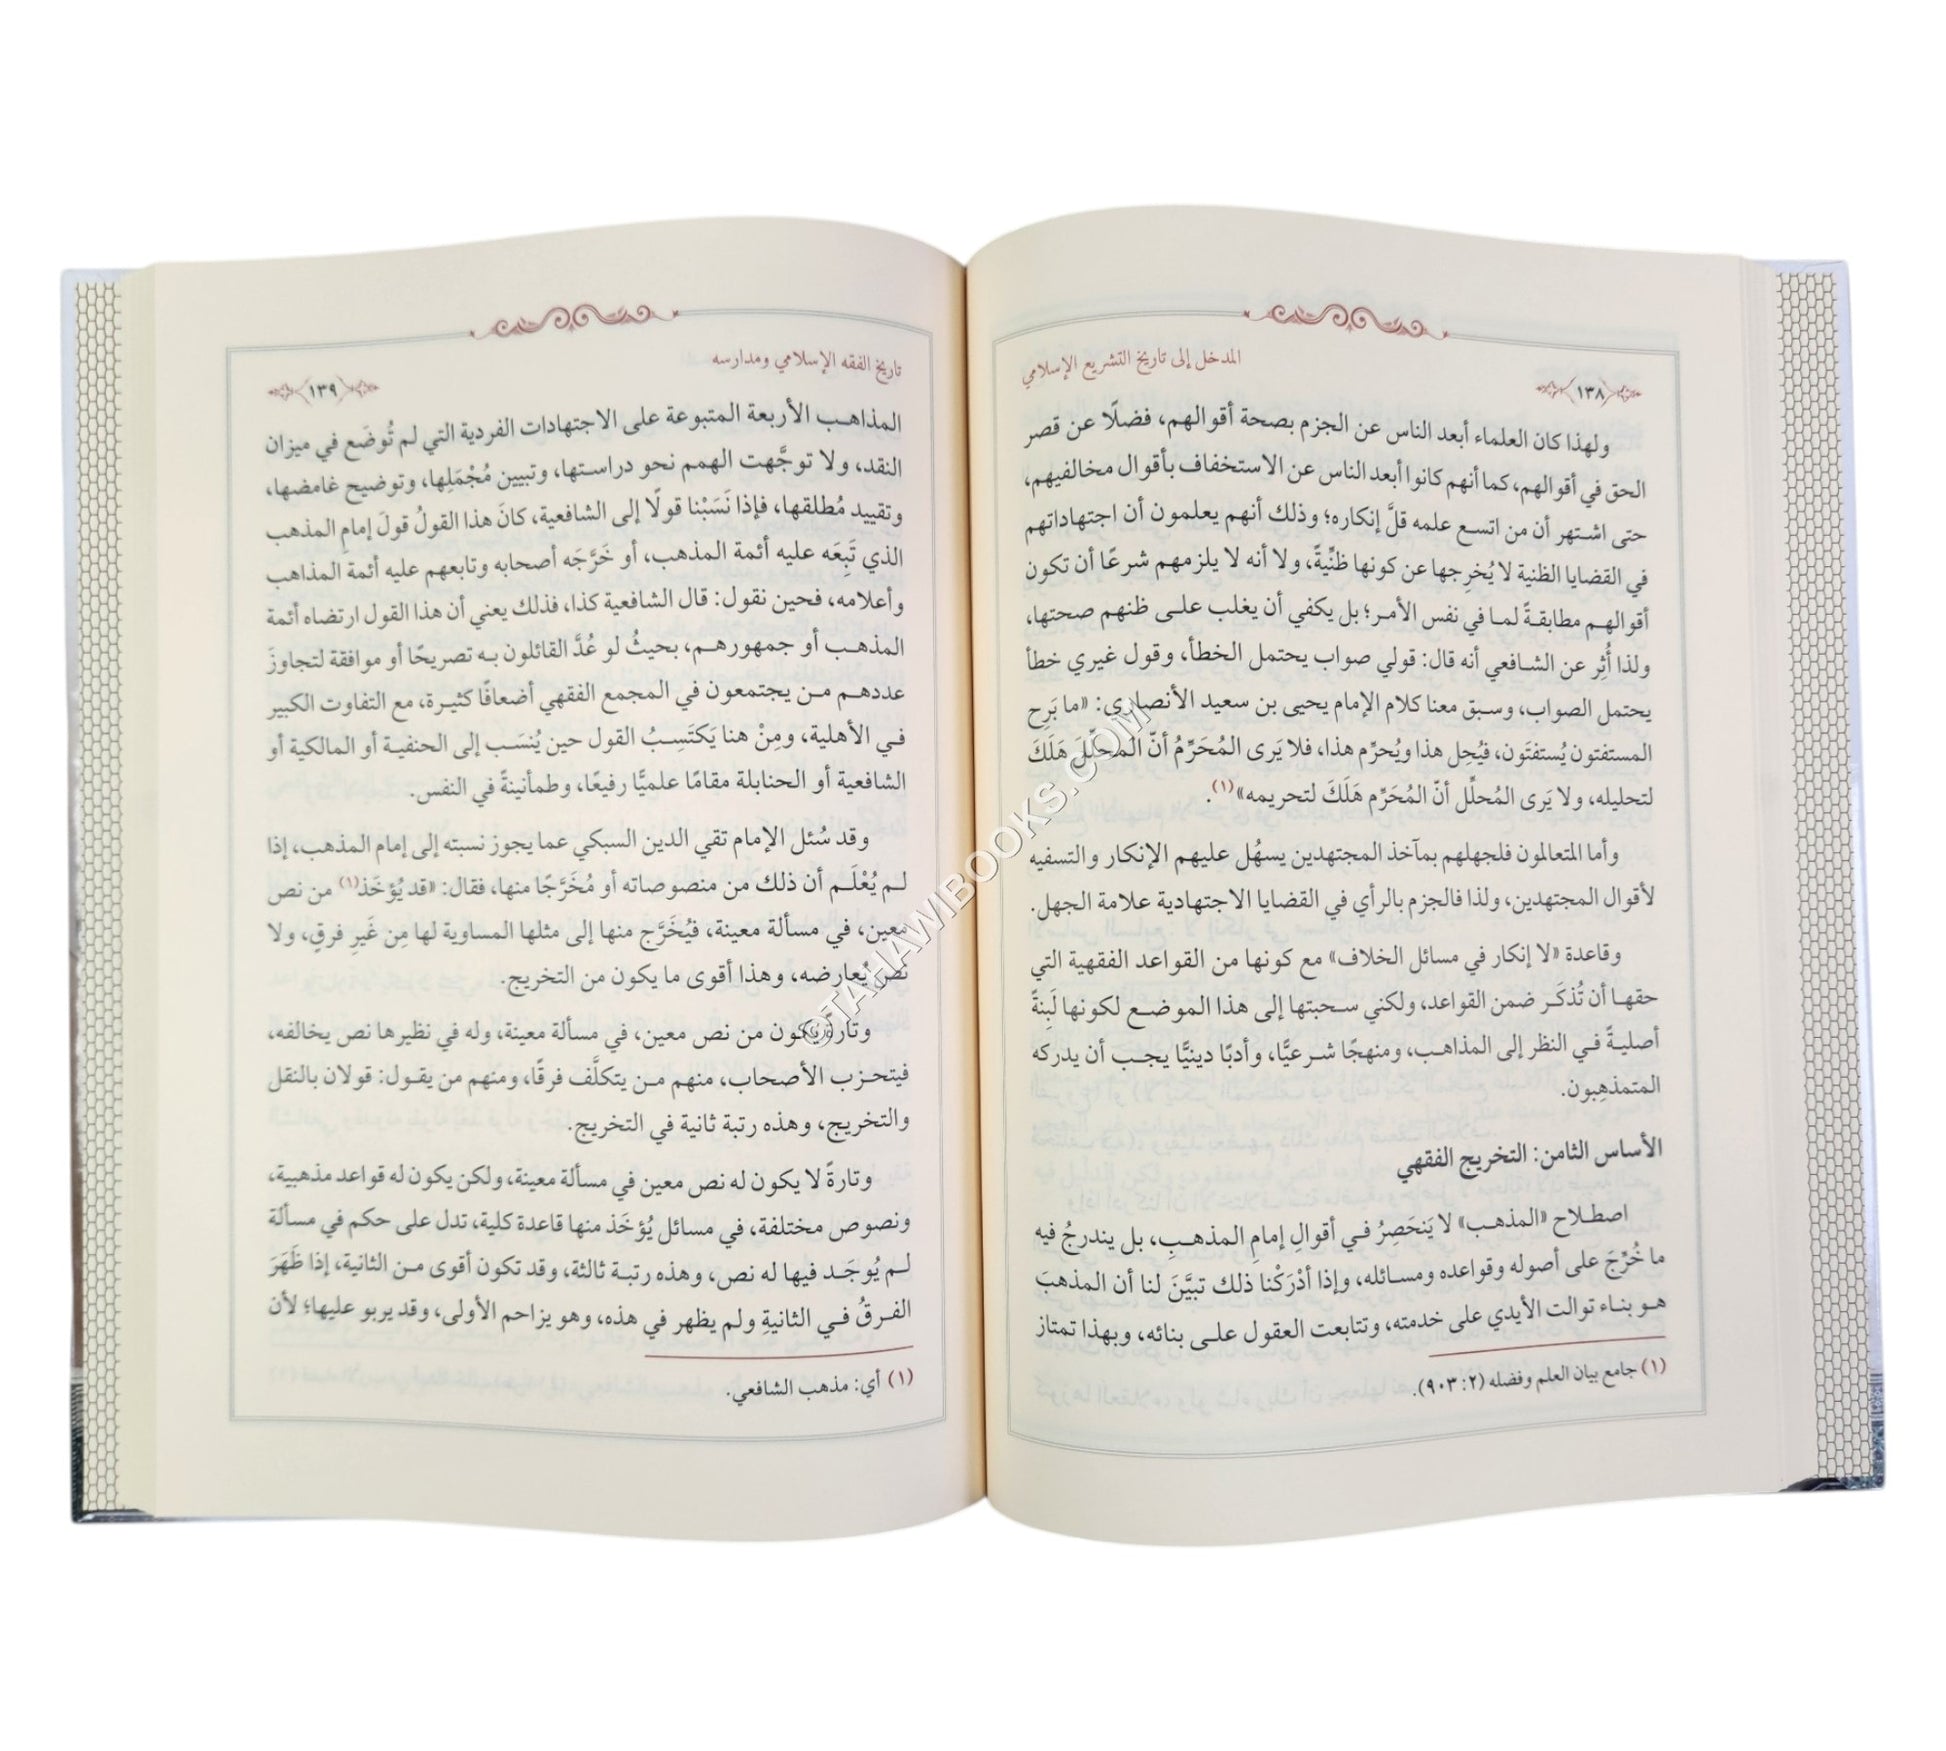 المدخل إلى تاريخ التشريع الإسلامي
١٣٨
ولهذا كان العلماء أبعد الناس عن الجزم بصحة أقوالهم، فضلًا عن قصر
الحق في أقوالهم، كما أنهم كانوا أبعد الناس عن الاستخفاف بأقوال مخالفيهم،
حتى اشتهر أن من اتسع علمه قلَّ إنكاره؛ وذلك أنهم يعلمون أن اجتهاداتهم
في القضايا الظنية لا يُخرِجها عن كونها ظنِّيةً، ولا أنه لا يلزمهم شرعًا أن تكون
أقوالهم مطابقةً لما في نفس الأمر؛ بل يكفي أن يغلب على ظنهم صحتها،
ولذا أُثِر عن الشافعي أنه قال: قولي صواب يحتمل الخطأ، وقول غيري خطأ
يحتمل الصواب، وسبق معنا كلام الإمام يحيى بن سعيد الأنصاري: «ما بَرِح
المستفتون يُستفتَون، فيُحِل هذا ويُحرِّم هذا، فلا يَرى المُحَرِّمُ أنّ المُحلِّلَ هَلَكَ
لتحليله، ولا يَرى المُحلِّل أنّ المُحَرِّم هَلَكَ لتحريمه»(١).
وأما المتعالمون فلجهلهم بمآخذ المجتهدين يسهُل عليهم الإنكار والتسفيه
لأقوال المجتهدين، ولذا فالجزم بالرأي في القضايا الاجتهادية علامة الجهل.
وقاعدة «لا إنكار في مسائل الخلاف» مع كونها من القواعد الفقهية التي
حقها أن تُذكَر ضمن القواعد، ولكني سحبتها إلى هذا الموضع لكونها لَبِنةً
أصليةً في النظر إلى المذاهب، ومنهجًا شرعيًّا، وأدبًا دينيًّا يجب أن يدركه
المتمذهِبون.
الأساس الثامن: التخريج الفقهي
اصطلاح «المذهب» لا يَنحَصِرُ في أقوالِ إمامِ المذهبِ، بل يندرجُ فيه
ما خُرِّجَ على أصوله وقواعده ومسائله، وإذا أدْرَكْنا ذلك تبيَّنَ لنا أن المذهبَ
هو بناء توالت الأيدي على خدمته، وتتابعت العقول على بنائه، وبهذا تمتاز
(١) جامع بيان العلم وفضله (٢: ٩٠٣).
تاريخ الفقه الإسلامي ومدارسه
١٣٩
المذاهب الأربعة المتبوعة على الاجتهادات الفردية التي لم تُوضَع في ميزان
النقد، ولا توجَّهت الهمم نحو دراستها، وتبيين مُجْمَلِها، وتوضيح غامضها،
وتقييد مُطلقها، فإذا نَسَبْنا قولًا إلى الشافعية، كانَ هذا القولُ قولَ إمامِ المذهب
الذي تَبِعَه عليه أئمة المذهب، أو خَرَّجَه أصحابه وتابعهم عليه أئمة المذاهب
وأعلامه، فحين نقول: قال الشافعية كذا، فذلك يعني أن هذا القول ارتضاه أئمة
المذهب أو جمهورهم، بحيثُ لو عُدَّ القائلون به تصريحًا أو موافقة لتجاوزَ
عددهم من يجتمعون في المجمع الفقهي أضعافًا كثيرة، مع التفاوت الكبير
في الأهلية، ومِنْ هنا يَكتَسِبُ القول حين يُنسَب إلى الحنفية أو المالكية أو
الشافعية أو الحنابلة مقامًا علميًّا رفيعًا، وطمأنينةً في النفس.
وقد سُئل الإمام تقي الدين السبكي عما يجوز نسبته إلى إمام المذهب، إذا
لم يُعْلَم أن ذلك من منصوصاته أو مُخَرَّجًا منها، فقال: «قد يُؤخَذ(١) من نص
معين، في مسألة معينة، فيُخَرَّج منها إلى مثلها المساوية لها مِن غَيرِ فرقٍ، ولا
نص يُعارضه، وهذا أقوى ما يكون من التخريج.
وتارةً يكون من نص معين، في مسألة معينة، وله في نظيرها نص يخالفه،
فيتحزب الأصحاب، منهم من يتكلَّف فرقًا، ومنهم من يقول: قولان بالنقل
والتخريج، وهذه رتبة ثانية في التخريج.
وتارةً لا يكون له نص معين في مسألة معينة، ولكن يكون له قواعد مذهبية،
ونصوص مختلفة، في مسائل يُؤخَذ منها قاعدة كلية، تدل على حكم في مسألة
لم يُوجَد فيها له نص، وهذه رتبة ثالثة، وقد تكون أقوى من الثانية، إذا ظَهَرَ
الفرقُ في الثانيةِ ولم يظهر في هذه، وهو يزاحم الأولى، وقد يربو عليها؛ لأن
(١) أي: مذهب الشافعي.
©TAHAWIBOOKS.COM